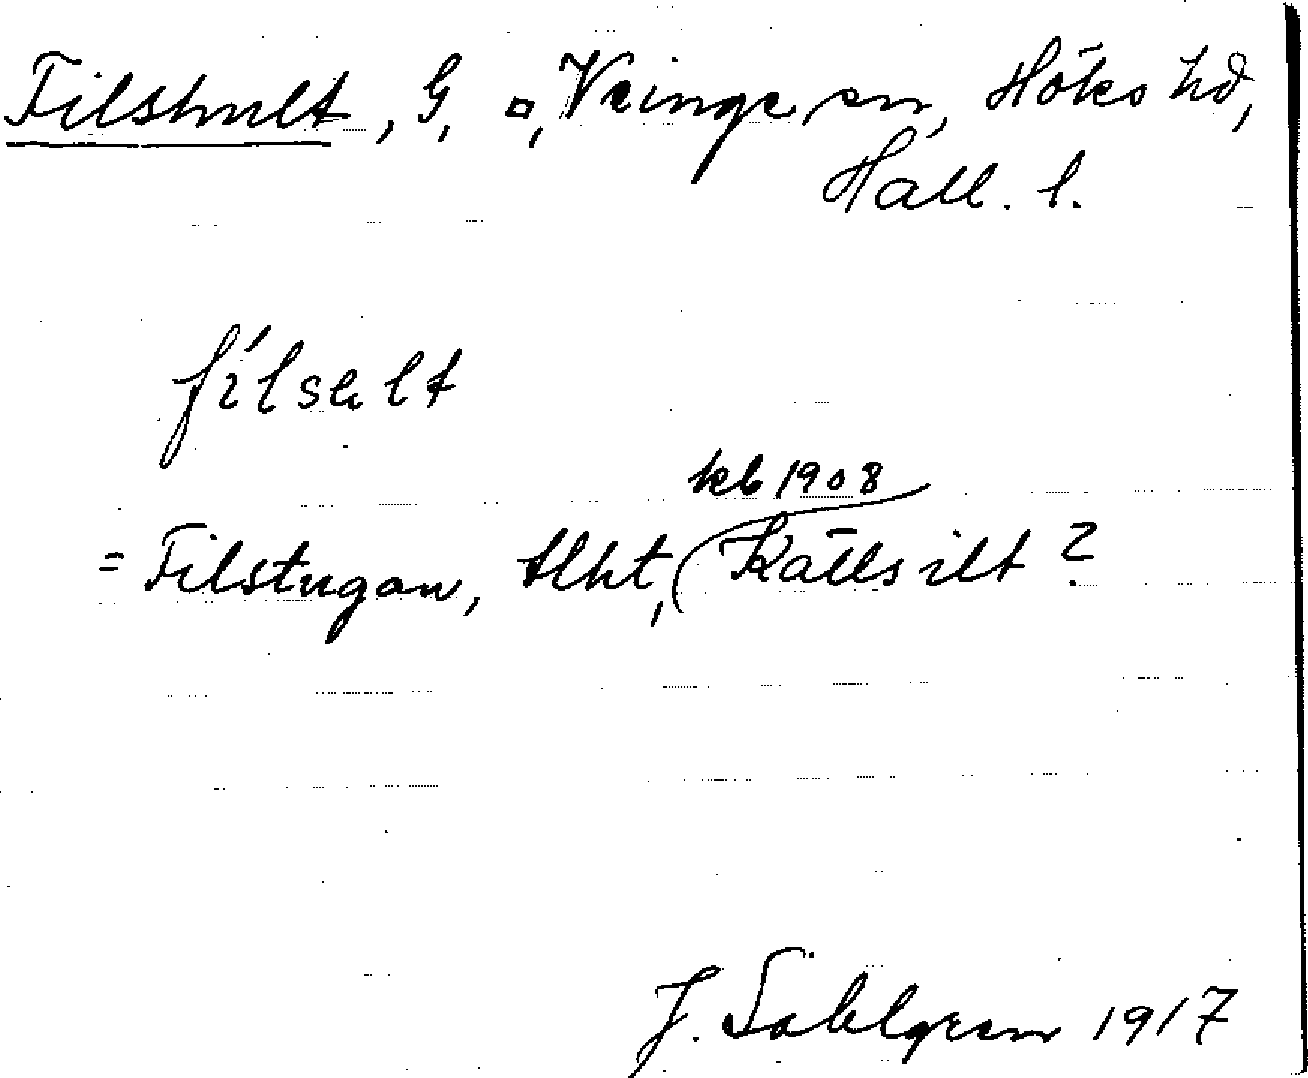 Filshult, G, ¤, Veinge sn, Höks hd,
Hall. l.
fílsɯlt
kb 1908
= Filstugan, tlht, (Källsilt?
J. Sahlgren 1917